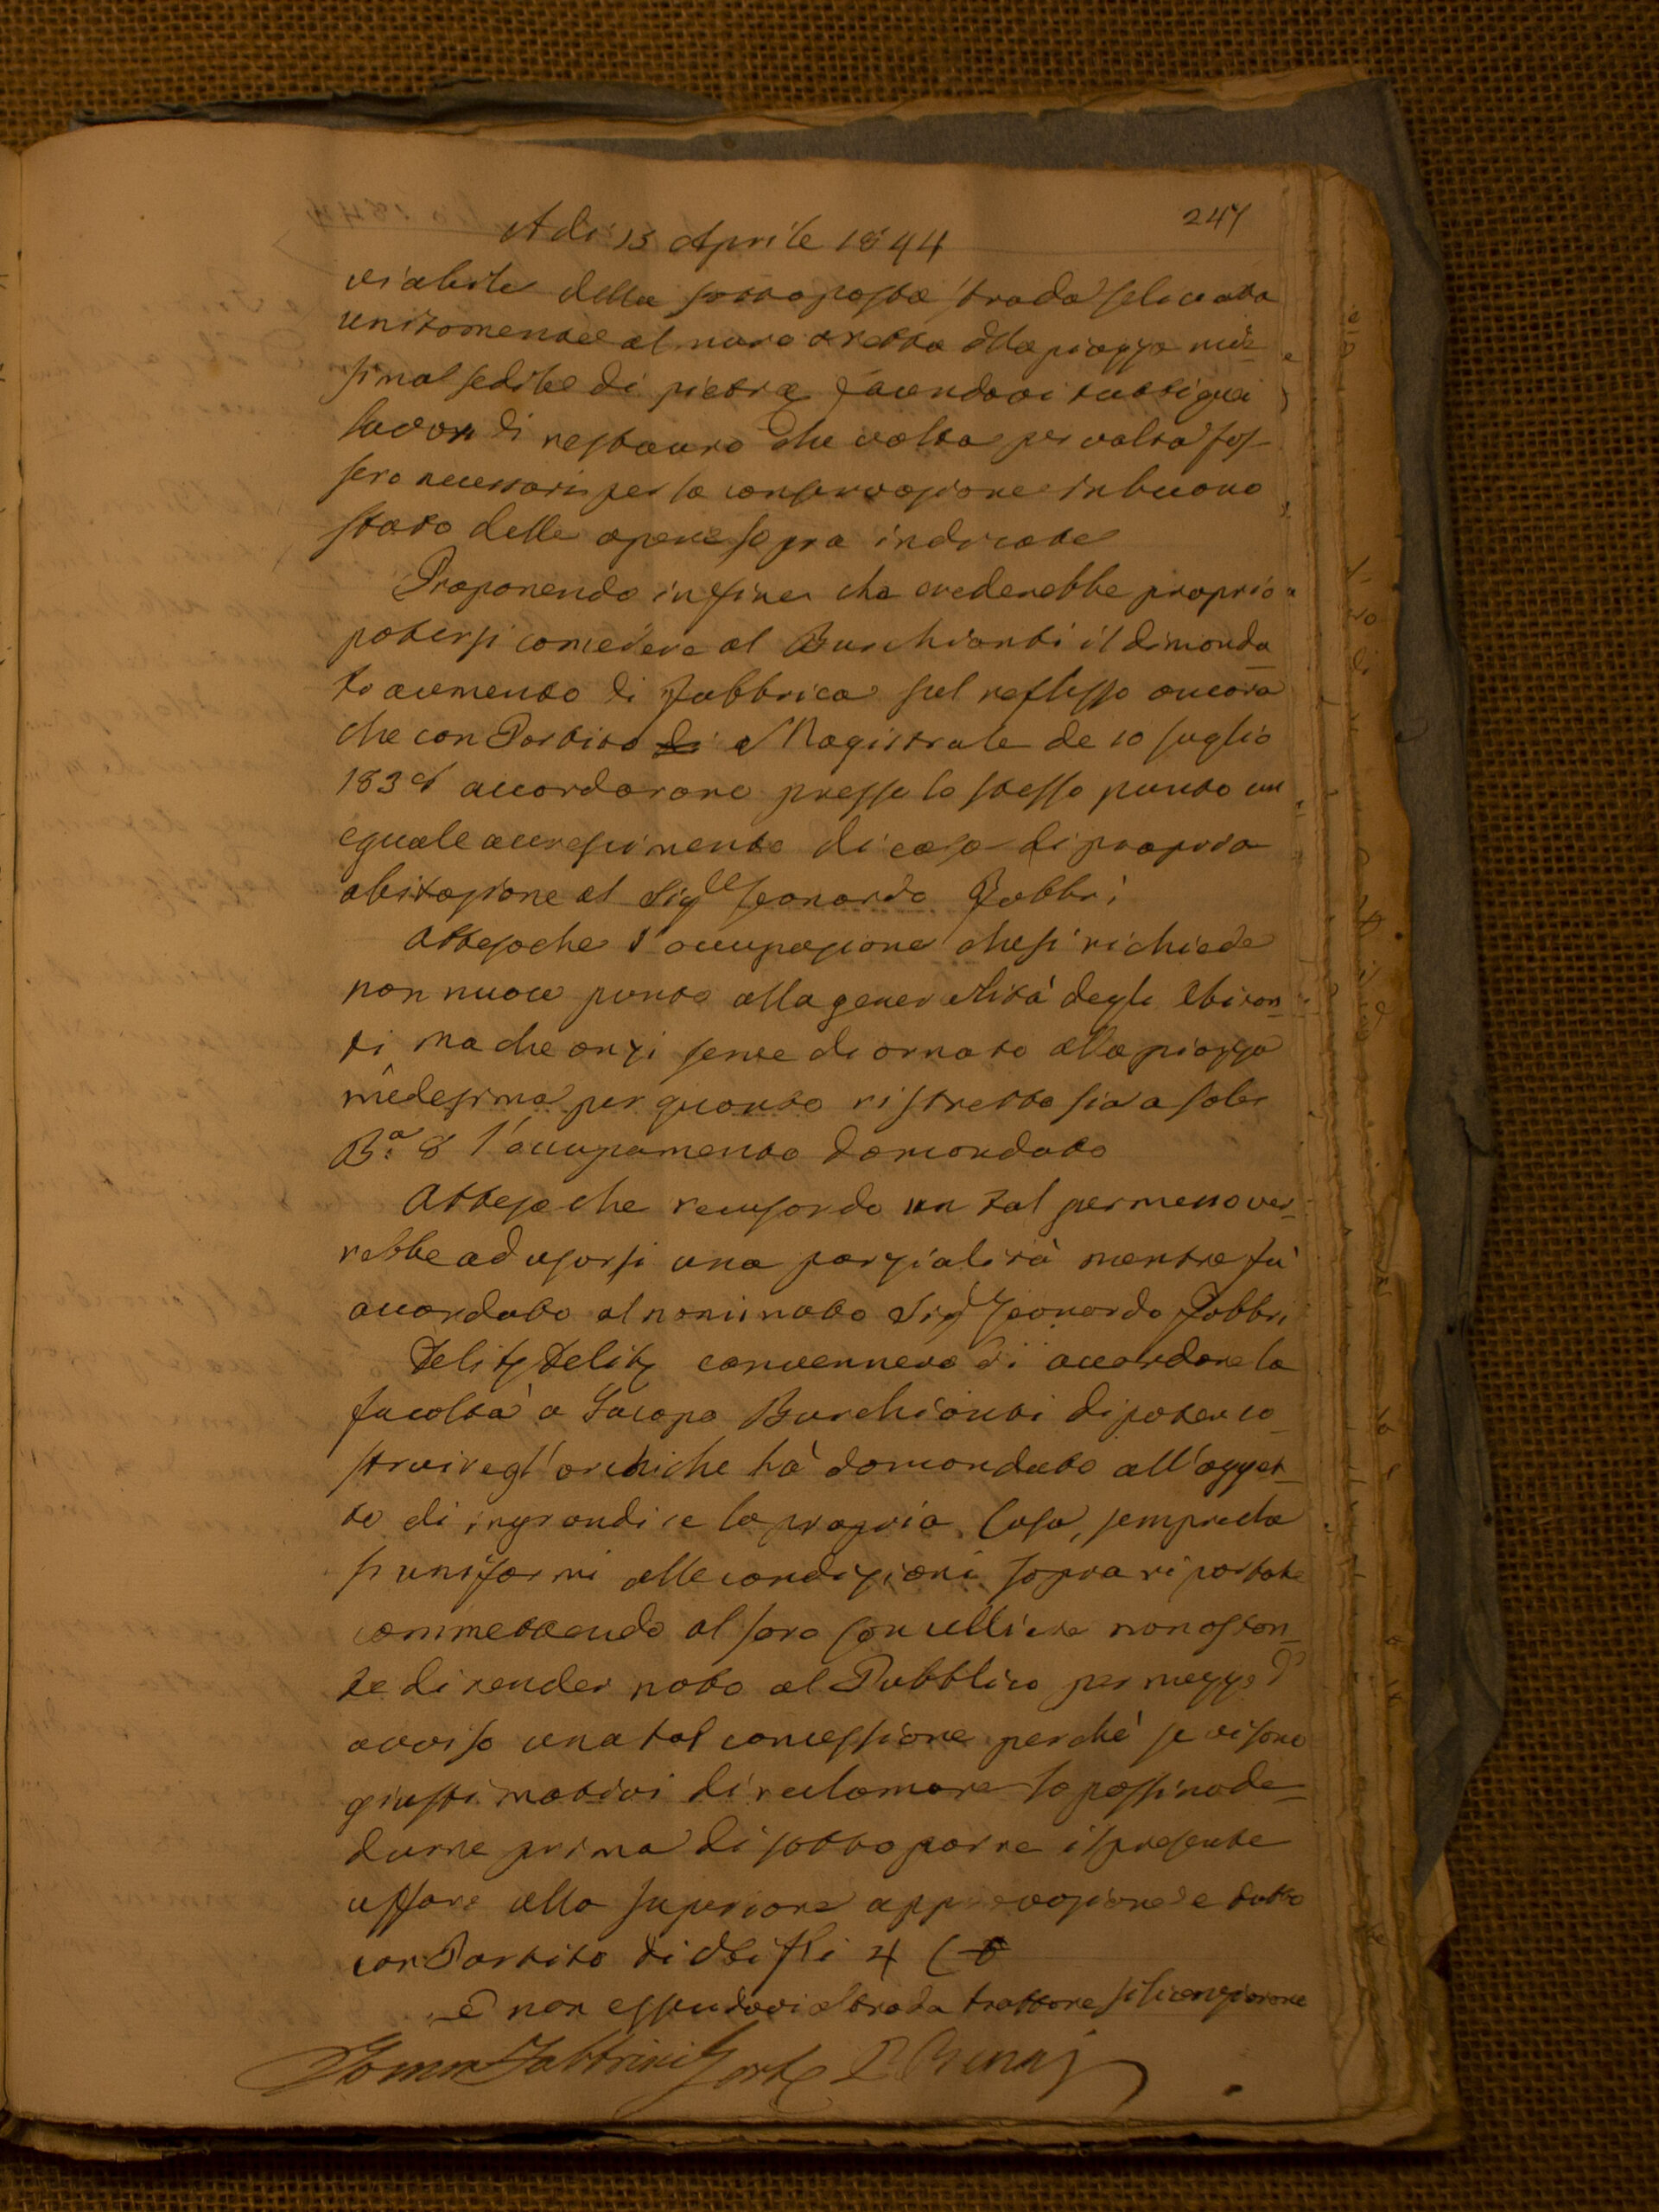 247
Adi 13 Aprile 1844
viabile della sottoposta strada selciata
unitamente al muro a retta della piazza me=
sima sedile di pietra facendovi tutti quei
lavori di restauro che volta per volta fos-
sero necessari per la conservazione in buono
stato delle opere sopra indicate
Proponendo infine che crederebbe proprio
potersi concedere al Burchianti il dimanda-
to aumento di fabbrica sul reflesso ancora
che con Partito Magistrale de 10 Luglio
183 accordarono presso lo stesso punto un
eguale accrescimento di casa di propria
abitazione al Sigre Leonardo Fabbri
Attesoche l'occupazione che si richiede
non nuoce punto alla generalità degli Abitan=
ti ma che anzi serve di ornato alla piazza
medesima per quanto ristretto sia a sole
Ba 8 l'occupamento domandato
Attesoche recusando un tal permesso ver=
rebbe ad usarsi una parzialità mentre fù
accordato al nominato Sigr Leonardo Fabbri
Delib Delib convennero di accordare la
facoltà a Jacopo Burchianti di poter co-
struire gl'archi che hà domandato all'ogget-
to di ingrandire la propria Casa, sempreche
si uniformi alle condizioni sopra riportate
commettendo al loro Cancelliere nonostan-
te di render noto al Pubblico per mezzo d'
avviso una tal concessione perchè se vi sono
giusti motivi di reclamare lo possino de-
durre prima di sottoporre il presente
affare alla superiore approvazione e tutto
con Partito di Voti fli 4 C 0
E non essendovi altro da trattare si licenziarono
Tomm Fabbrini Gonfe